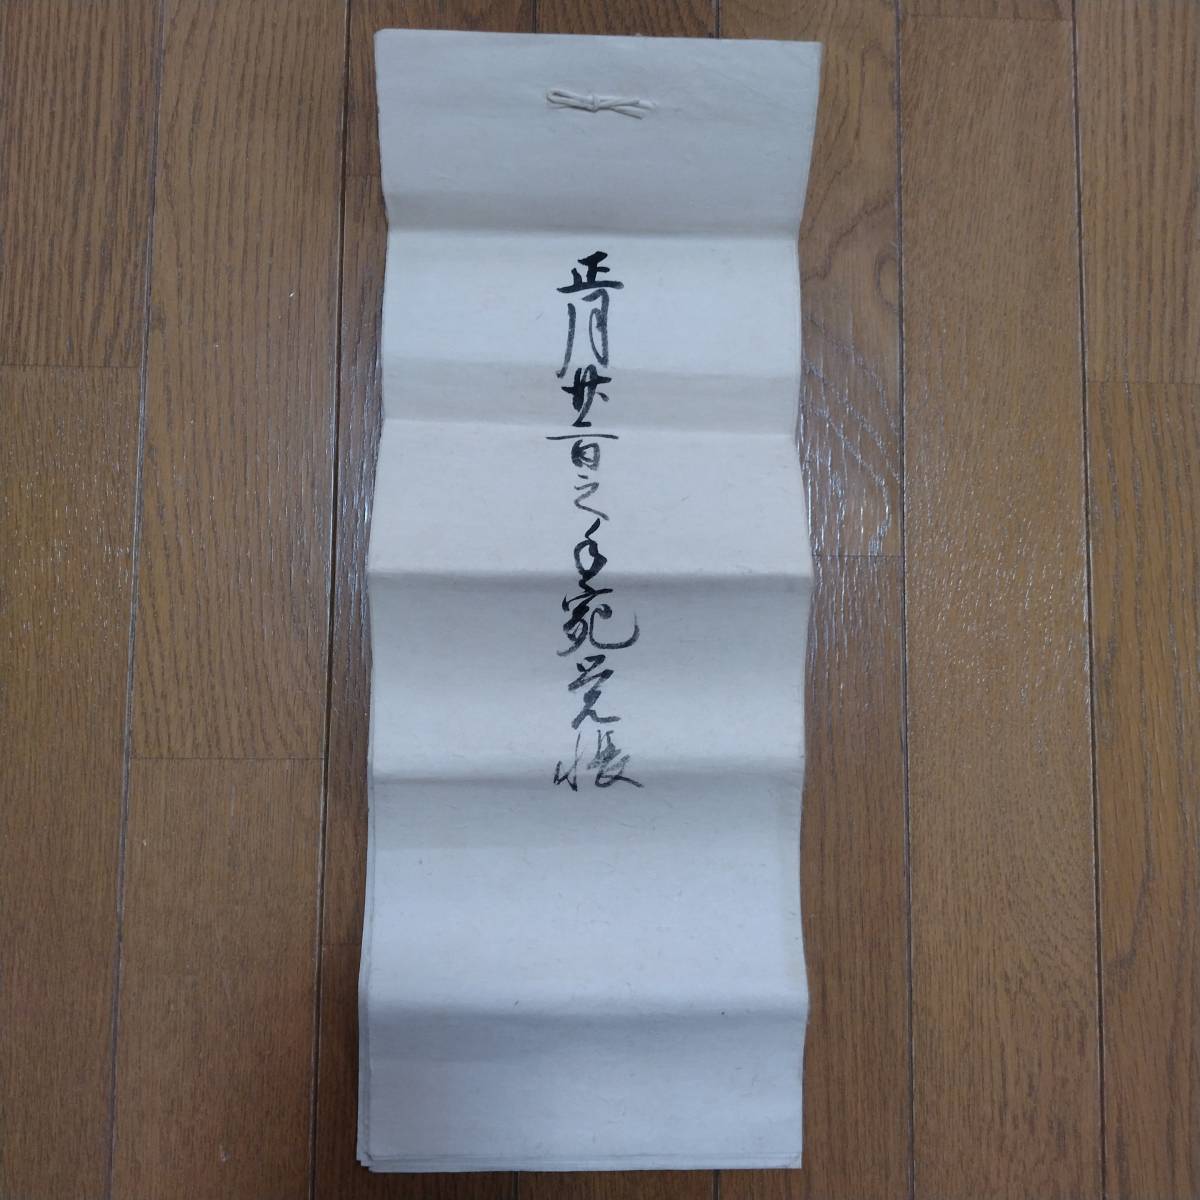 正月廿二日之手宛覚帳